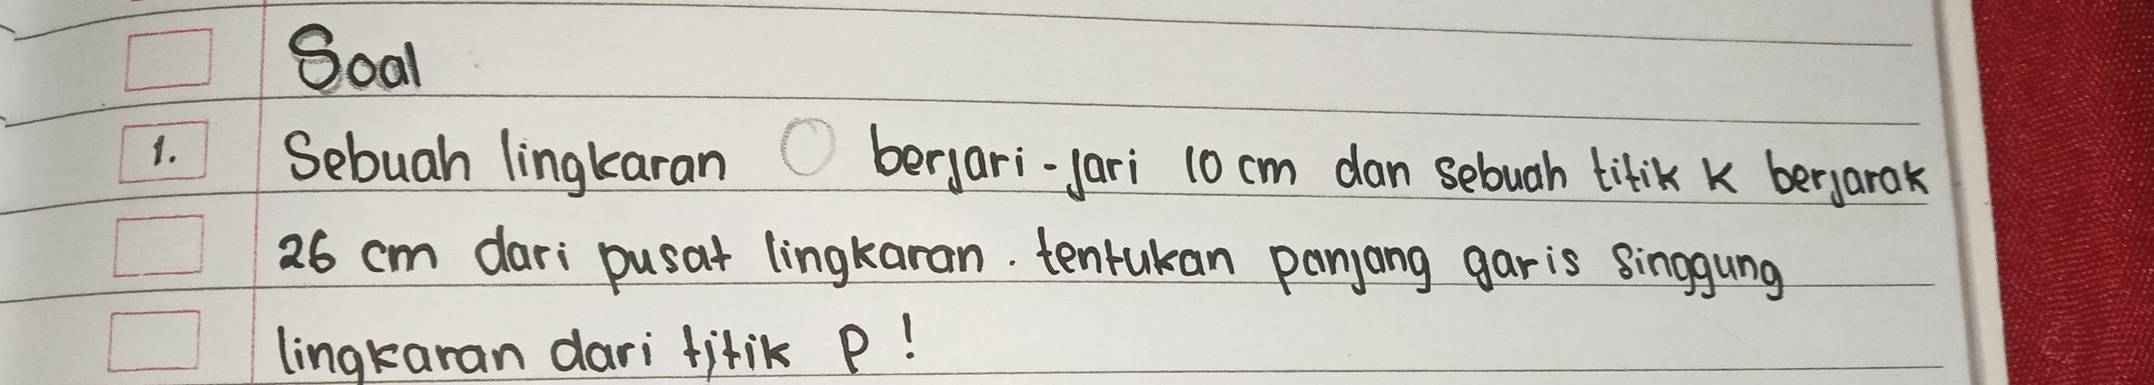 Soal
1. Sebuah lingkaran O berjari-jari 10 cm dan sebuah titik K berjarak
26 cm dari pusat lingkaran. tentukan panjang garis singgung
lingkaran dari titik P!